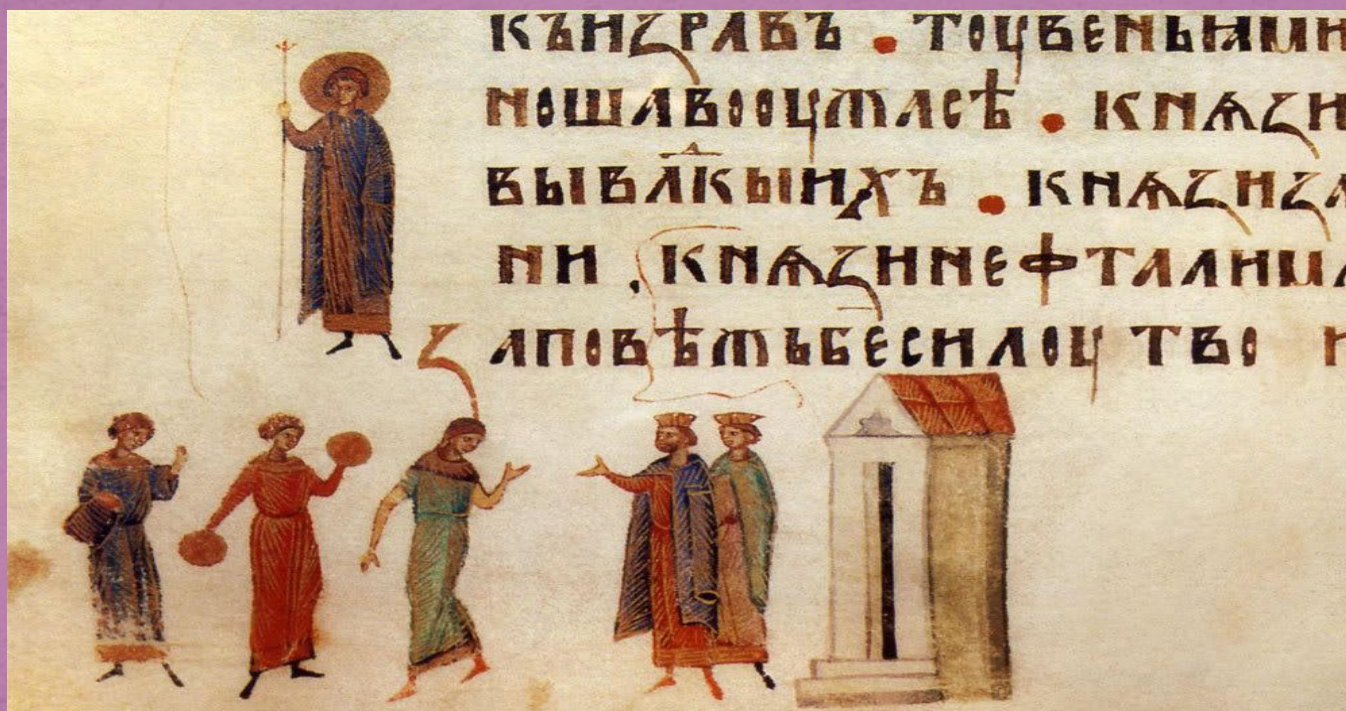 КЪИЗРЛВЪ • ТОУВЕНЬꙖМИН
НОШАВООУЖАСѢ • КНѦЗИ
ВЫВЛⷣКЫИХЪ • КНѦЗИЗА
НИ . КНѦЗИНЕФТАЛИМЛ
ЗАПОВѢЖЬБЕСИЛОУ ТВО